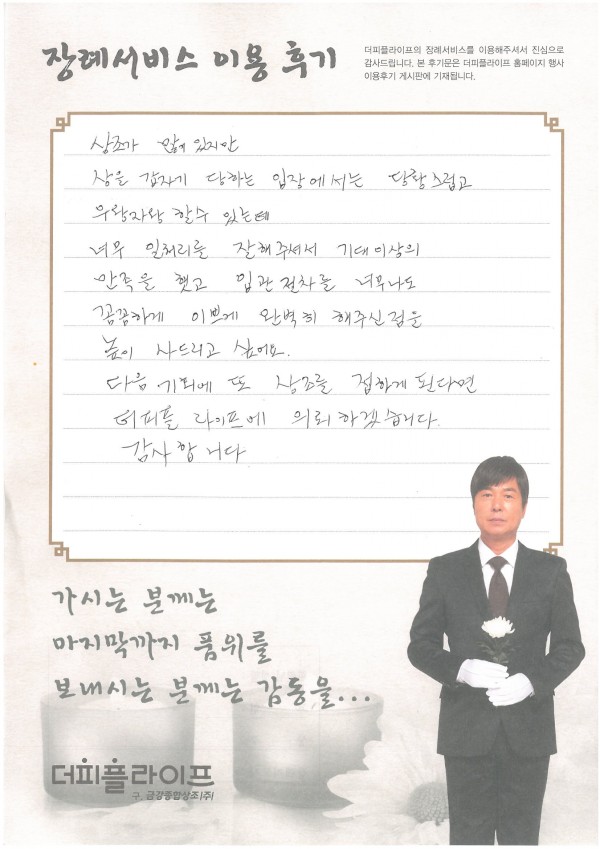 장례서비스 이용 후기
더피플라이프의 장례서비스를 이용해주셔서 진심으로
감사드립니다. 본 후기문은 더피플라이프 홈페이지 행사
이용후기 게시판에 기재됩니다.
상조가 많이 있지만
상을 갑자기 당하는 입장에서는 당황스럽고
우왕좌왕 할수 있는데
너무 일처리를 잘해주셔서 기대이상의
만족을 했고 입관절차를 너무나도
꼼꼼하게 이쁘게 완벽히 해주신점을
높이 사드리고 싶어요.
다음 기회에 또 상조를 접하게 된다면
더피플 라이프에 의뢰하겠습니다.
감사합니다
가시는 분께는
마지막까지 품위를
보내시는 분께는 감동을...
더피플라이프
구. 금강종합상조(주)